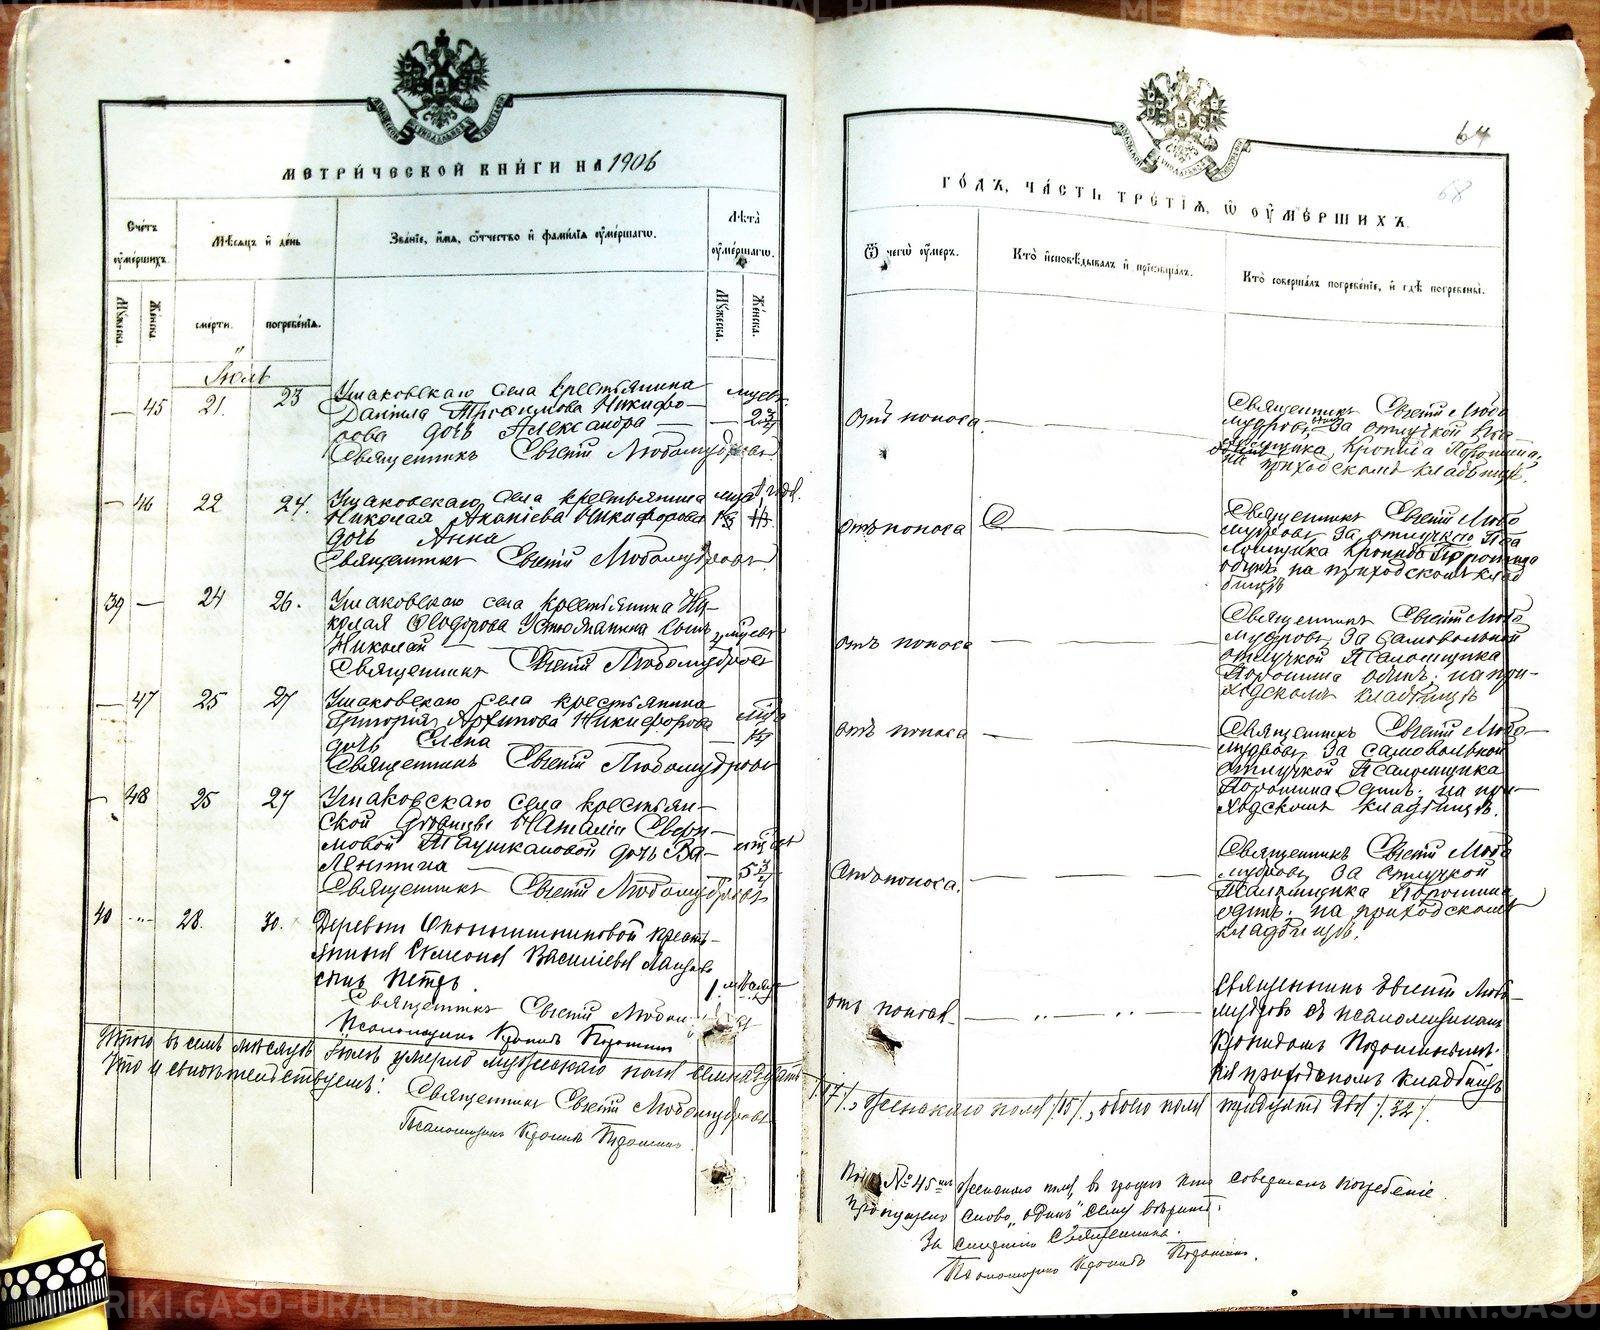 METRIKI.GASO-URAL.RU
METRIKI.GASO-URAL.RU
МЕТРИ́ЧЕСКОЙ КНИ́ГИ НА 1906
Сче́тъ оумершихъ.
Мѣ́сяцъ и де́нь
Зва́ніе, и́мя, о́тчество и фами́лія оуме́ршагω.
Лѣта̀ оуме́ршагω.
Мужеска.
Женска.
сме́рти.
погребе́нія.
Мужеска.
Же́нска.
Іюль
— 45 21. 23 Ушаковскаго села крестьянина
Даніила Трофимова Никифо-
рова дочь Александра —
Священникъ Евгеній Любомудровъ
— 46 22 24. Ушаковскаго села крестьянина
Николая Никифорова
дочь Анна
Священникъ Евгеній Любомудровъ
39 — 24 26. Ушаковскаго села крестьянина Ни-
колая Ѳеодорова Устюжанина сынъ
Николай —
Священникъ Евгеній Любомудровъ
— 47 25 27 Ушаковскаго села крестьянина
Григорія Архипова Никифорова
дочь Елена —
Священникъ Евгеній Любомудровъ
— 48 25 27 Ушаковскаго села крестьян-
ской дѣвицы Наталіи
дочь Ва-
лентина —
Священникъ Евгеній Любомудровъ
40 -"- 28. 30. Деревни кресть-
янина Симеона Василіева
сынъ Петръ.
Священникъ Евгеній Любом
Псаломщикъ Кронидъ Порошинъ
Итого въ семъ мѣсяцѣ Іюлѣ умерло мужескаго пола семнадцать
Что и свидѣтельствуемъ:
Священникъ Евгеній Любомудровъ
Псаломщикъ Кронидъ Порошинъ
64
68
ГО́ДЪ, ЧА́СТЬ ТРЕ́ТІЯ, Ѡ ОУМЕ́РШИХЪ.
Ѿ чегѡ̀ оу́меръ.
Кто̀ исповѣ́дывалъ и пріобща́лъ.
Кто̀ соверша́лъ погребе́ніе, и гдѣ̀ погребены̀.
Отъ поноса —
Священникъ Евгеній Любо
мудровъ за отлучкой Пса-
ломщика Кронида Порошина,
на приходскомъ кладбищѣ.
отъ поноса —
Священникъ Евгеній Любо
мудровъ за отлучкою Пса
ломщика Кронида Порошина
одинъ на приходскомъ клад
бищѣ
отъ поноса —
Священникъ Евгеній Любо
мудровъ за самовольной
отлучкой Псаломщика
Порошина одинъ: на при-
ходскомъ кладбищѣ
отъ поноса —
Священникъ Евгеній Любо-
мудровъ за самовольной
отлучкой Псаломщика
Порошина одинъ: на при-
ходскомъ кладбищѣ.
Отъ поноса. —
Священникъ Евгеній Любо
мудровъ за отлучкой
Псаломщика Порошина
одинъ: на приходскомъ
кладбищѣ.
отъ поноса —
Священникъ Евгеній Любо-
мудровъ съ псаломщикомъ
Кронидомъ Порошинымъ.
на приходскомъ кладбищѣ
/17/, женскаго пола /15/, обоего пола тридцать два /32/.
Подъ № 45мъ женскаго пола, въ графѣ кто совершалъ погребеніе
пропущено слово „одинъ" сему вѣрить.
Священника.
Псаломщикъ Кронидъ Порошинъ.
METRIKI.GASO-URAL.RU
METRIKI.GASO